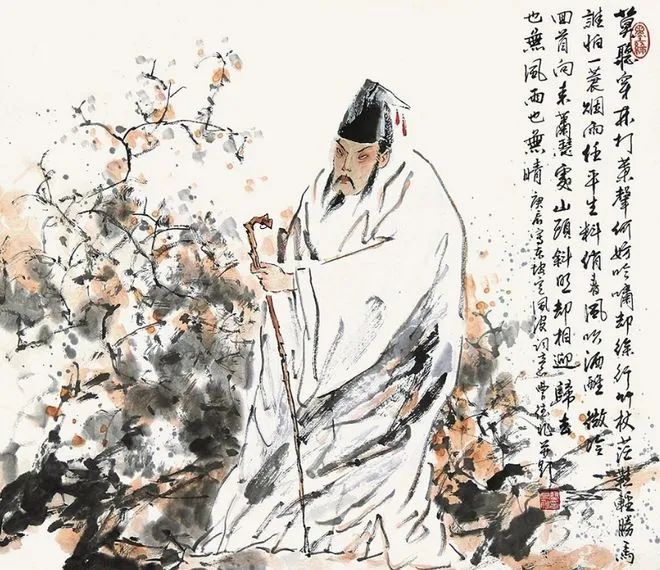 莫聽穿林打葉聲何妨吟嘯却徐行竹杖芒鞋輕勝馬
誰怕一蓑烟雨任平生料峭春風吹酒醒微冷
回首向来蕭瑟處山頭斜照却相迎歸去
也無風雨也無晴 庚辰寫東坡定風波詞意